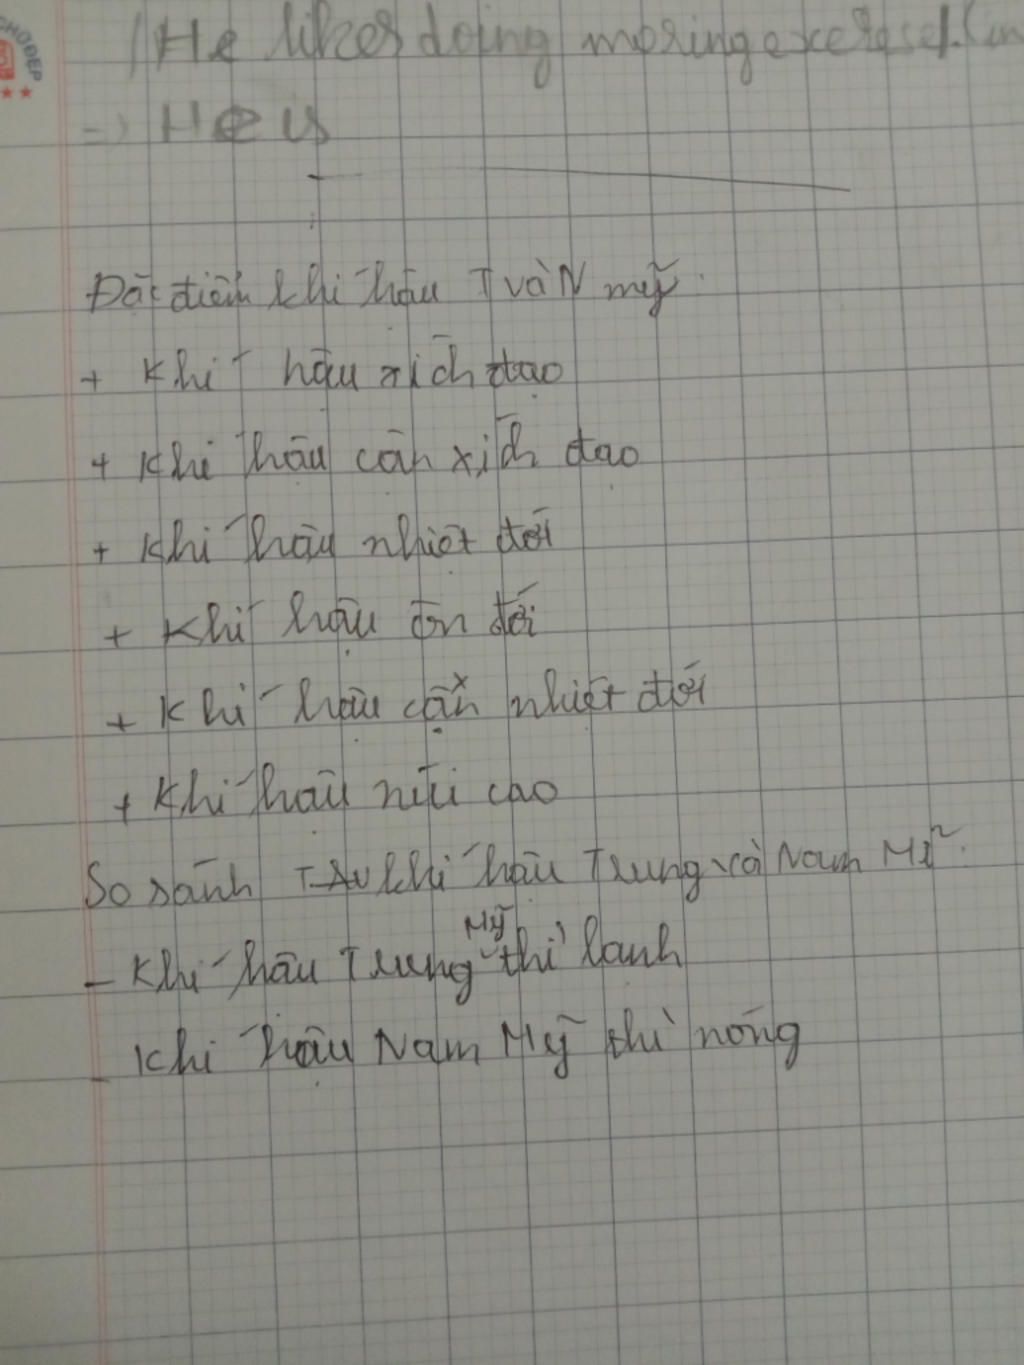 He likes doing moring exerese1. (in
=> He is
Đặc điểm khí hậu T và N mỹ.
+ Khí hậu xích đạo
+ Khí hậu cận xích đạo
+ Khí hậu nhiệt đới
+ Khí hậu ôn đới
+ Khí hậu cận nhiệt đới
+ Khí hậu núi cao
So sánh khí hậu Trung và Nam Mĩ.
- Khí hậu Trung Mỹ thì lạnh
- Khí hậu Nam Mỹ thì nóng